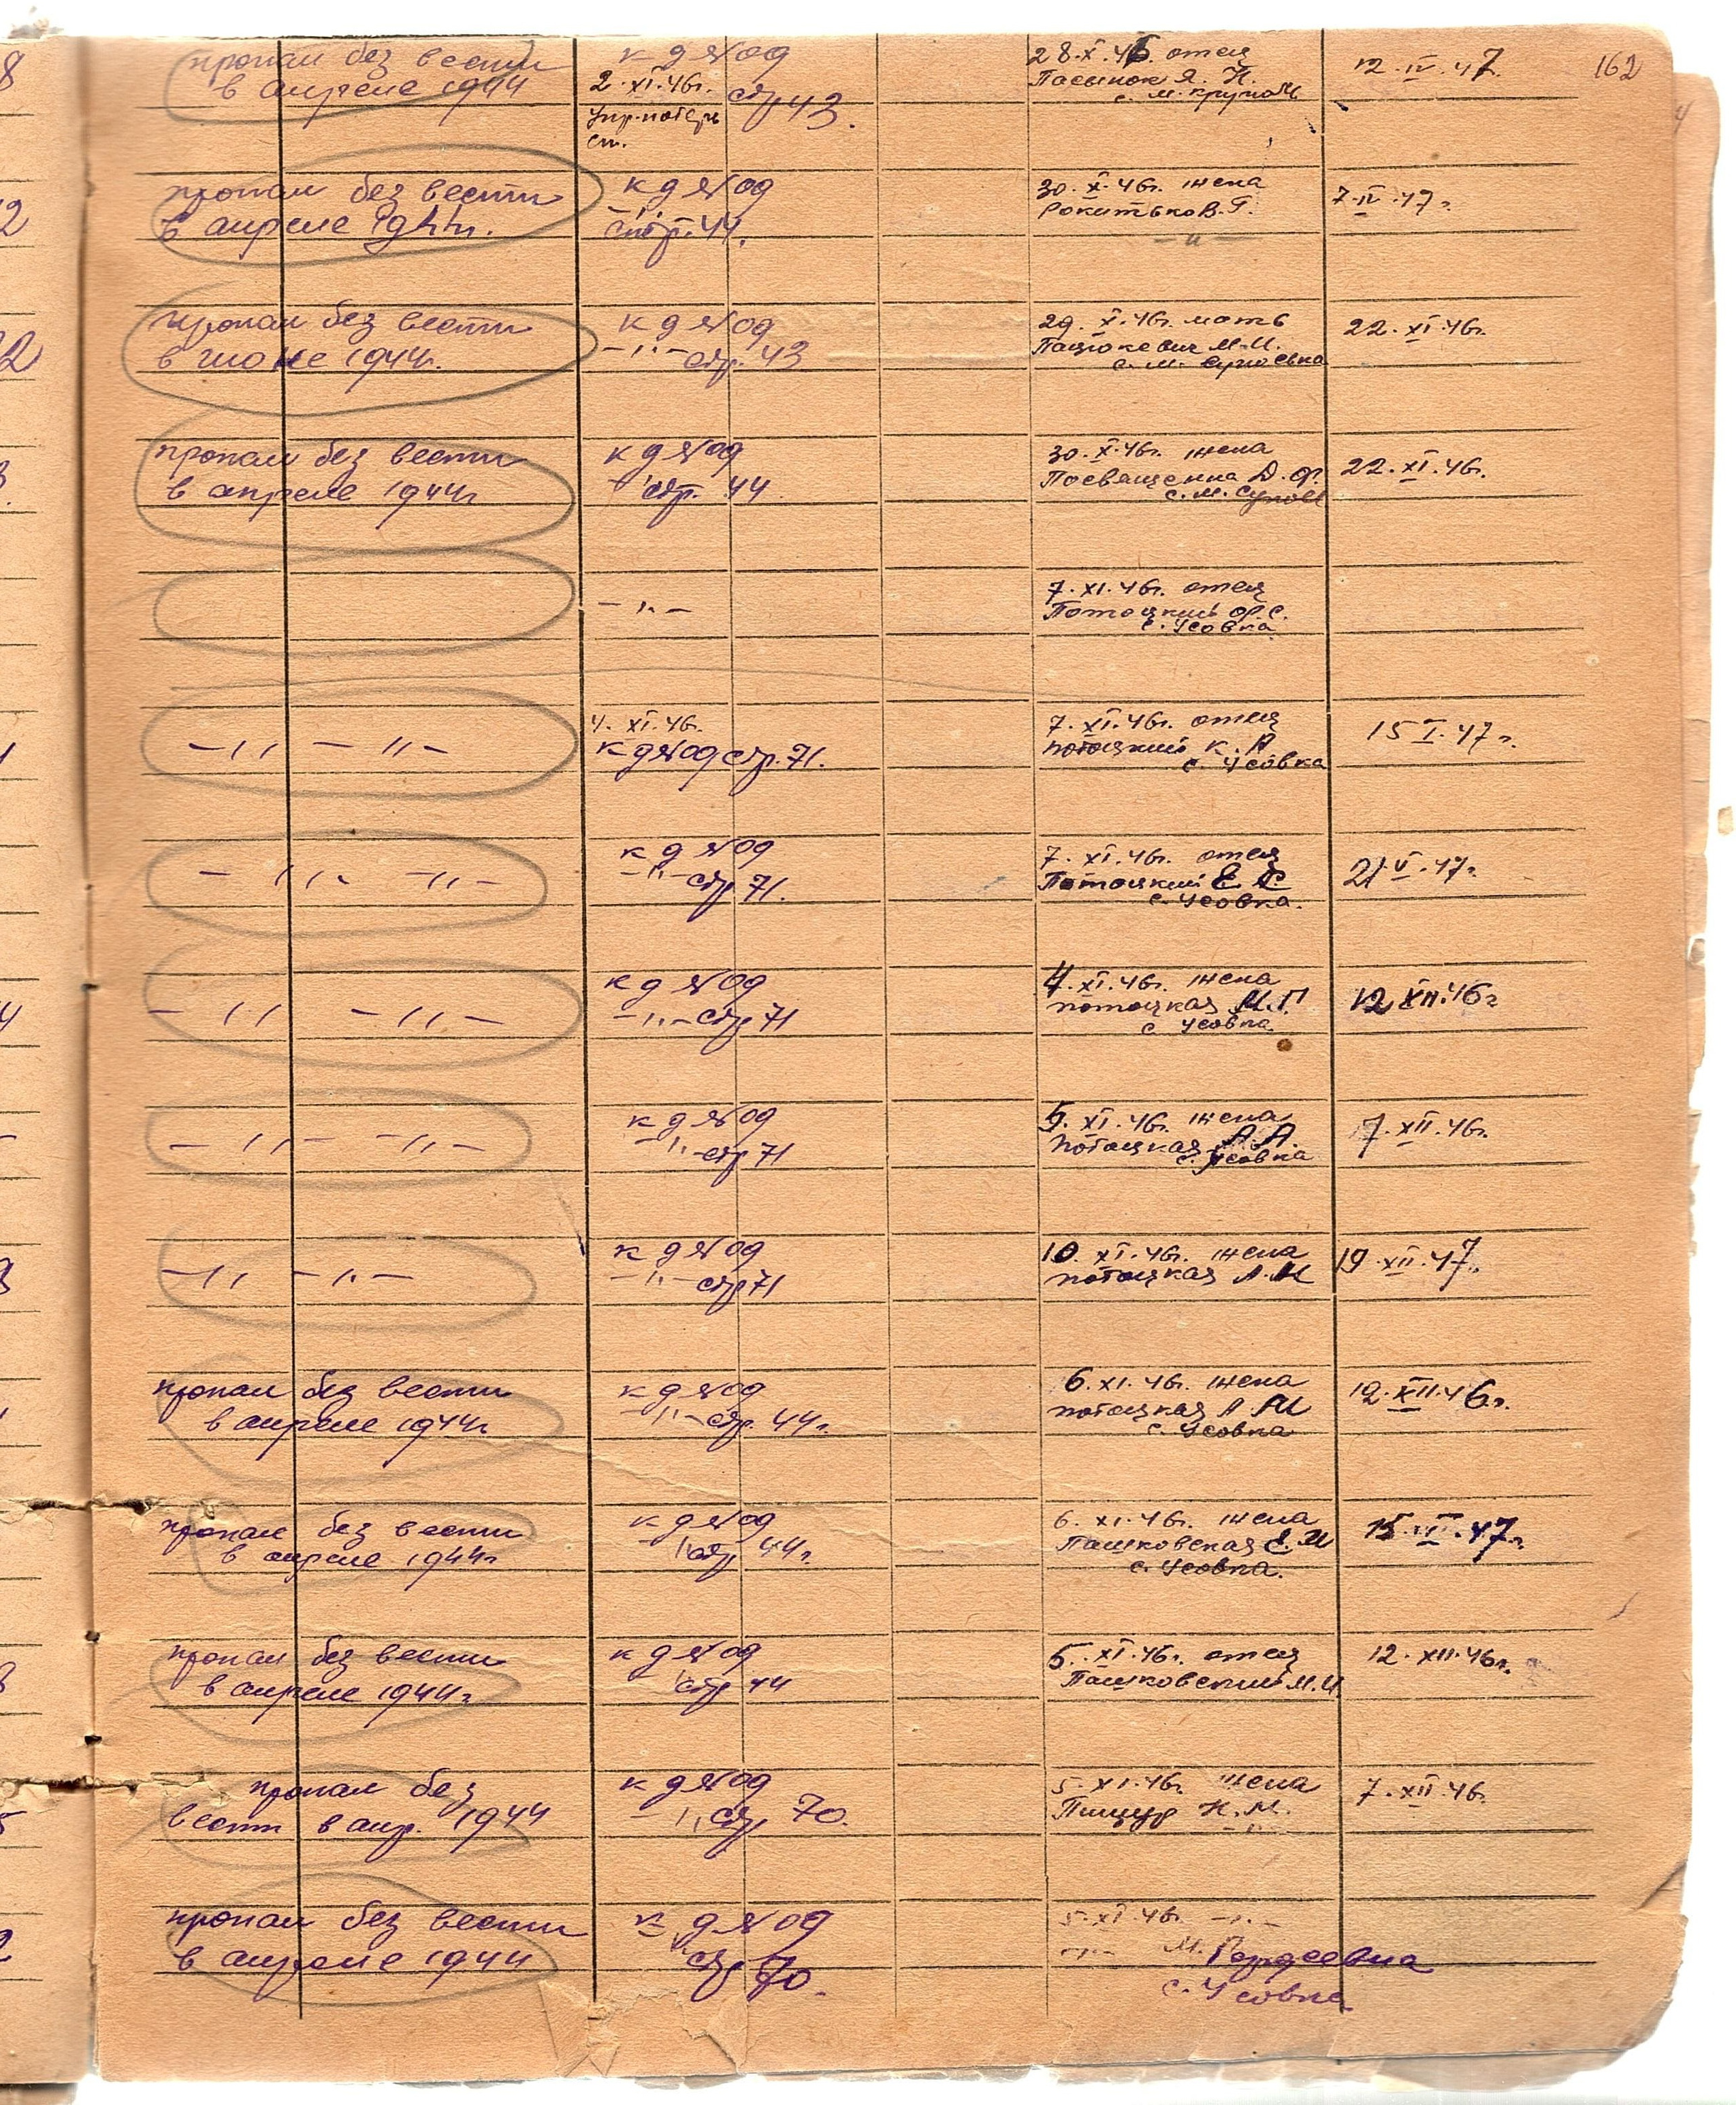 162
пропал без вести
в апреле 1944
к д №09
2.XI.46г. стр 43.
Упр. потерь
ст.
28.X.46 отец
Пасынок Я. Н.
с. М. Круполь
12.IV.47.
пропал без вести
в апреле 1944г.
к д №09
—〃—
стр. 44.
30.X.46г. жена
В. Г.
—〃—
7.IV.47г.
пропал без вести
в июне 1944г.
к д №09
—〃— стр. 43
29.X.46г. мать
Пацюкевич М.И.
с. М.
22.XI.46г.
пропал без вести
в апреле 1944г
к д №09
стр. 44
30.X.46г. жена
Д. Ф.
с. М.
22.XI.46г.
—〃—
7.XI.46г. отец
Потоцкий Ф.С.
с. Усовка
—〃— 〃—
4.XI.46г.
к д №09 стр. 71.
7.XI.46г. отец
Потоцкий К. А
с. Усовка
15 I.47г.
—〃— —〃—
к д №09
—〃— стр 71.
7.XI.46г. отец
Потоцкий Е С.
с. Усовка.
21.V.47г.
—〃— —〃—
к д №09
—〃— стр 71
4.XI.46г. жена
Потоцкая М.П
с Усовка
12 XII.46г
—〃— —〃—
к д №09
—〃— стр 71
5.XI.46г. жена
Потоцкая А.А.
с. Усовка
7.XII.46г.
—〃— —〃—
к д №09
—〃— стр 71
10.XI.46г. жена
Потоцкая А.М
19.XII.47г.
пропал без вести
в апреле 1944г
к д №09
—〃— стр. 44г.
6.XI.46г. жена
Потоцкая А М
с. Усовка
12.XII.46г.
пропал без вести
в апреле 1944г
к д №09
стр 44г.
6.XI.46г. жена
Пашковская Е.М
с. Усовка.
47г
пропал без вести
в апреле 1944г
к д №09
стр 44
5.XI.46г. отец
Пашковский М.И.
12.XII.46г.
пропал без
вести в апр. 1944
к д №09
—〃 стр 70.
5.XI.46г. жена
Пищур Н.М.
—〃—
7.XII.46г.
пропал без вести
в апреле 1944
к д №09
стр 70.
5.XI.46г —〃—
—〃— М. Гордеевна
с. Усовка